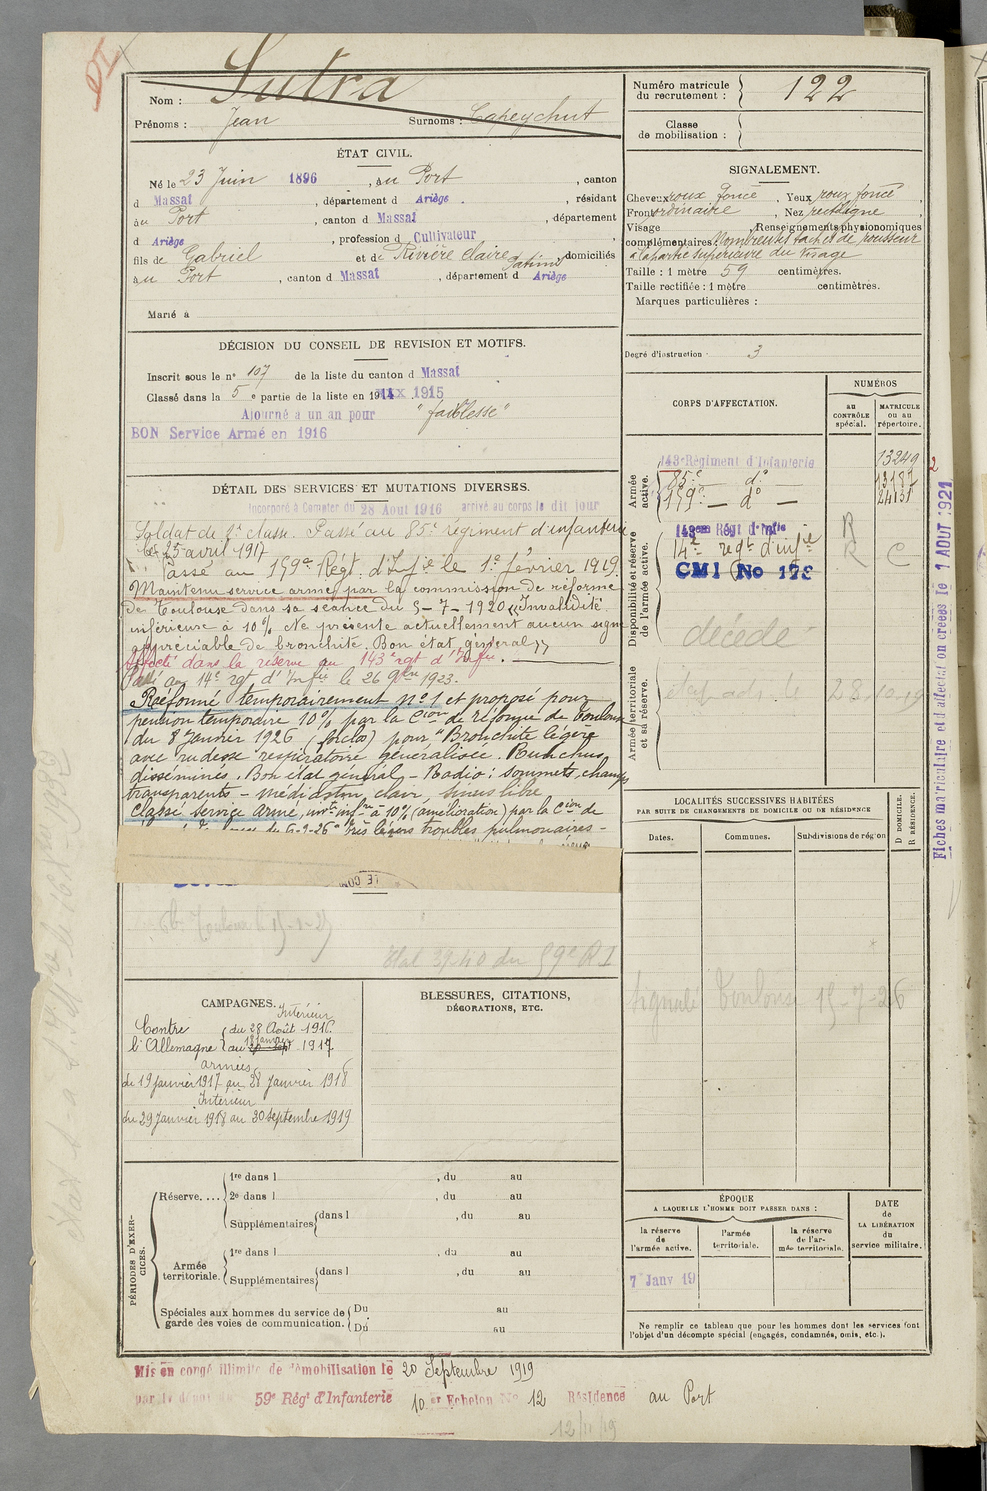 Sutra
Nom :
Prénoms : Jean Surnoms : Capeychut
ÉTAT CIVIL.
Né le 23 Juin 1896, au Port, canton
d Massat, département d Ariège, résidant
au Port, canton d Massat, département
d Ariège, profession d Cultivateur
fils de Gabriel et de Rivière Claire, domiciliés
au Port, canton d Massat, département d Ariège
Marié à
DÉCISION DU CONSEIL DE REVISION ET MOTIFS.
Inscrit sous le n° 107 de la liste du canton d Massat
Classé dans la 5 e partie de la liste en 1915
Ajourné à un an pour "faiblesse"
BON Service Armé en 1916
DÉTAIL DES SERVICES ET MUTATIONS DIVERSES.
Incorporé à Compter du 28 Aout 1916 arrivé au corps le dit jour
Soldat de 2e classe. Passé au 85e Régiment d'infanterie
le 25 avril 1917
Passé au 159e Régt. d'Infie le 1er février 1919.
Maintenu service armé par la commission de réforme
de Toulouse dans sa séance du 5-7-1920 "Invalidité
inférieure à 10% Ne présente actuellement aucun signe
appréciable de bronchite. Bon état général"
Affecté dans la réserve au 143e rgt d'Infie.
Passé au 14e rgt d'Infie le 26 9bre 1923.
Réformé temporairement n°1 et proposé pour
pension temporaire 10% par la Cion de réforme de Toulouse
du 8 Janvier 1926 (forclos) pour "Bronchite légère
avec rudesse respiratoire généralisée. Ronchus
disséminés. Bon état général - Radio : sommets, champs
transparents - médiastin clair, sinus libre
Classé service armé, à 10% (amélioration) par la Cion de
du 6-9-26 très légers troubles pulmonaires -
Toulouse
39-40 du 59e RI
CAMPAGNES.
Intérieur
Contre l'Allemagne du 28 Août 1916
au 18 janvier 1917
armées
du 19 janvier 1917 au 28 Janvier 1918
Intérieur
du 29 Janvier 1918 au 30 Septembre 1919
BLESSURES, CITATIONS,
DÉCORATIONS, ETC.
PÉRIODES D'EXERCICES.
Réserve....
1re dans l , du au
2e dans l , du au
Supplémentaires dans l , du au
Armée territoriale.
1re dans l , du au
Supplémentaires dans l , du au
Spéciales aux hommes du service de garde des voies de communication.
Du au
Du au
Mis en congé illimité de démobilisation le 20 Septembre 1919
par le dépôt du 59e Régt d'Infanterie 10 er Echelon N° 12 Résidence au Port
12/11/19
Numéro matricule
du recrutement : 122
Classe
de mobilisation :
SIGNALEMENT.
Cheveux roux foncé, Yeux roux foncé
Front ordinaire, Nez rectiligne
Visage , Renseignements physionomiques
complémentaires : Nombreuses taches de rousseur
à la partie supérieure du visage
Taille : 1 mètre 59 centimètres.
Taille rectifiée : 1 mètre centimètres.
Marques particulières :
Degré d'instruction : 3
CORPS D'AFFECTATION.
NUMÉROS
au CONTRÔLE spécial.
MATRICULE ou au répertoire.
Armée active.
143e Régiment d'Infanterie 13249
85e — d° — 13187
159e — d° — 24131
Disponibilité et réserve de l'armée active.
143eme Régt d'Infie R
14e regt d'infie R C
CMI No 178
décédé
Armée territoriale et sa réserve.
28-10-19
LOCALITÉS SUCCESSIVES HABITÉES
PAR SUITE DE CHANGEMENTS DE DOMICILE OU DE RÉSIDENCE
Dates.
Communes.
Subdivisions de région
D DOMICILE.
R RÉSIDENCE.
Signalé Toulouse 15-7-26
ÉPOQUE
A LAQUELLE L'HOMME DOIT PASSER DANS :
la réserve de l'armée active.
l'armée territoriale.
la réserve de l'armée territoriale.
DATE de LA LIBÉRATION du service militaire.
7 Janv 19
Ne remplir ce tableau que pour les hommes dont les services font
l'objet d'un décompte spécial (engagés, condamnés, omis, etc.).
Fiches matriculaire et d'affectation créées le 1 AOUT 1921